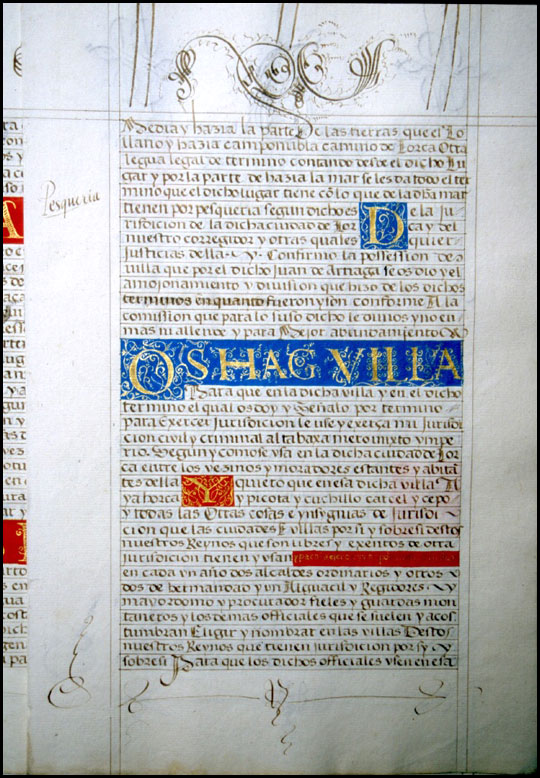 Pesqueria
Media y hazia la parte de las tierras que el Lo
llano y hazia camponubla camino de Lorca Otra
legua legal de termino contando desde el dicho Lu
gar y por la parte de hazia la mar se les da todo el ter
mino que el dicho lugar tiene cõ lo que de la dha mar
tienen por pesqueria segun dicho es De la Ju
risdicion de la dicha ciudad de Lorca y del
nuestro corregidor y otras quales quier
Justicias della. Y. Confirmo la possession de
villa que por el dicho Juan de Artiaga se os dio y el
amojonamiento y division que hizo de los dichos
terminos en quanto fueron y son conforme A la
comission que para lo suso dicho le dimos y no en
mas ni allende y para Mejor abundamiento
OS HAGO VILLA
Para que en la dicha villa y en el dicho
termino el qual os doy y Señalo por termino
para Exercer Jurisdicion se use y exerça mi Jurisdi
cion civil y criminal alta baxa mero mixto ymperio
Segun y como se usa en la dicha ciudad de Lor
ca entre los vezinos y moradores estantes y abita
tes della Y quiero que en esa dicha villa
aya horca y picota y cuchillo carcel y cepo
y todas las Otras cosas e ynsygnias de Jurisdi
cion que las ciudades E villas por si y sobre si destos
nuestros Reynos que son libres y exentos de otra
jurisdicion tienen y usan
en cada un año dos alcaldes ordinarios y otros
dos de hermandad y un Alguacil y Regidores. Y
mayordomo y procurador fieles y guardas mon
taneros y los demas officiales que se suelen y acos
tumbran Eligir y nombrar en las villas Destos
nuestros Reynos que tienen jurisdicion por sy Y
sobre si Para que los dichos officiales usen en esa